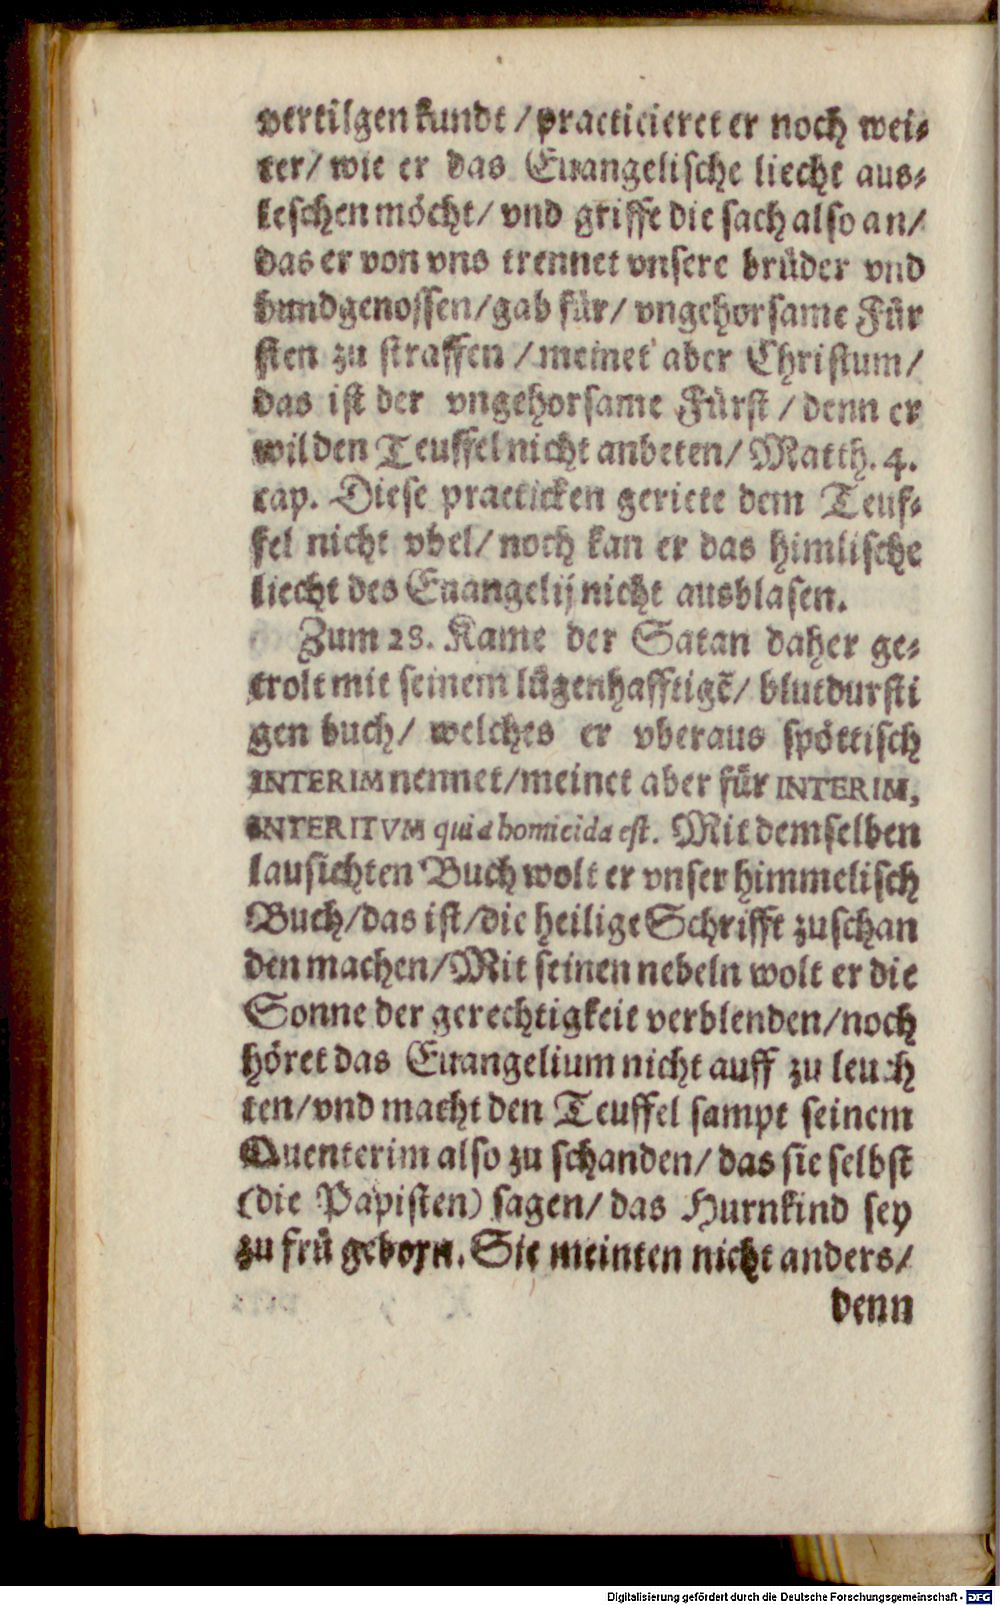 vertilgen kundt / practicieret er noch wei⸗
ter/ wie er das Euangelische liecht aus⸗
leschen möcht/ vnd griffe die sach also an/
das er von vns trennet vnsere brüder vnd
bundgenossen/ gab für/ vngehorsame Für
sten zu straffen / meinet aber Christum/
das ist der vngehorsame Fürst / denn er
wil den Teuffel nicht anbeten/ Matth. 4.
cap. Diese practicken geriete dem Teuf⸗
fel nicht vbel/ noch kan er das himlische
liecht des Euangelij nicht ausblasen.
Zum 28. Kame der Satan daher ge⸗
trolt mit seinem lügenhafftigē/ blutdursti
gen buch/ welches er vberaus spöttisch
INTERIM nennet/ meinet aber für INTERIM,
INTERITVM quia homicida est. Mit demselben
lausichten Buch wolt er vnser himmelisch
Buch/ das ist/ die heilige Schrifft zuschan
den machen/ Mit seinen nebeln wolt er die
Sonne der gerechtigkeit verblenden/ noch
höret das Euangelium nicht auff zu leuch
ten/ vnd macht den Teuffel sampt seinem
Quenterim also zu schanden/ das sie selbst
(die Papisten) sagen/ das Hurnkind sey
zu frü geborn. Sie meinten nicht anders/
denn
Digitalisierung gefördert durch die Deutsche Forschungsgemeinschaft - DFG